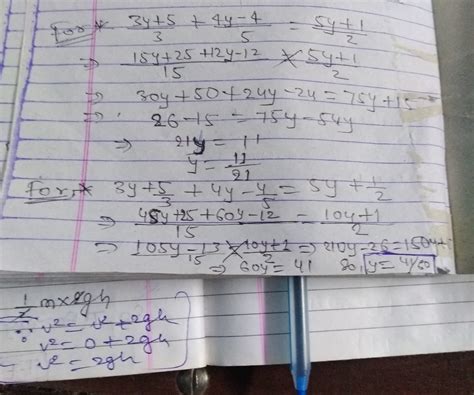 For * (3y+5)/3 + (4y-4)/5 = (5y+1)/2
⇒ (15y+25+12y-12)/15 × (5y+1)/2
⇒ 30y+50+24y-24 = 75y+15
⇒ 26-15 = 75y-54y
⇒ 21y = 11
y = 11/21
For, * 3y + 5/3 + 4y - 4/5 = 5y + 1/2
⇒ (45y+25+60y-12)/15 = (10y+1)/2
⇒ (105y-13)/15 × (10y+1)/2 ⇒ 210y-26 = 150y+
⇒ 60y = 41 so, y = 41/60
1/2 m×2gh
∵ v² = u² + 2gh
v² = 0 + 2gh
v² = 2gh